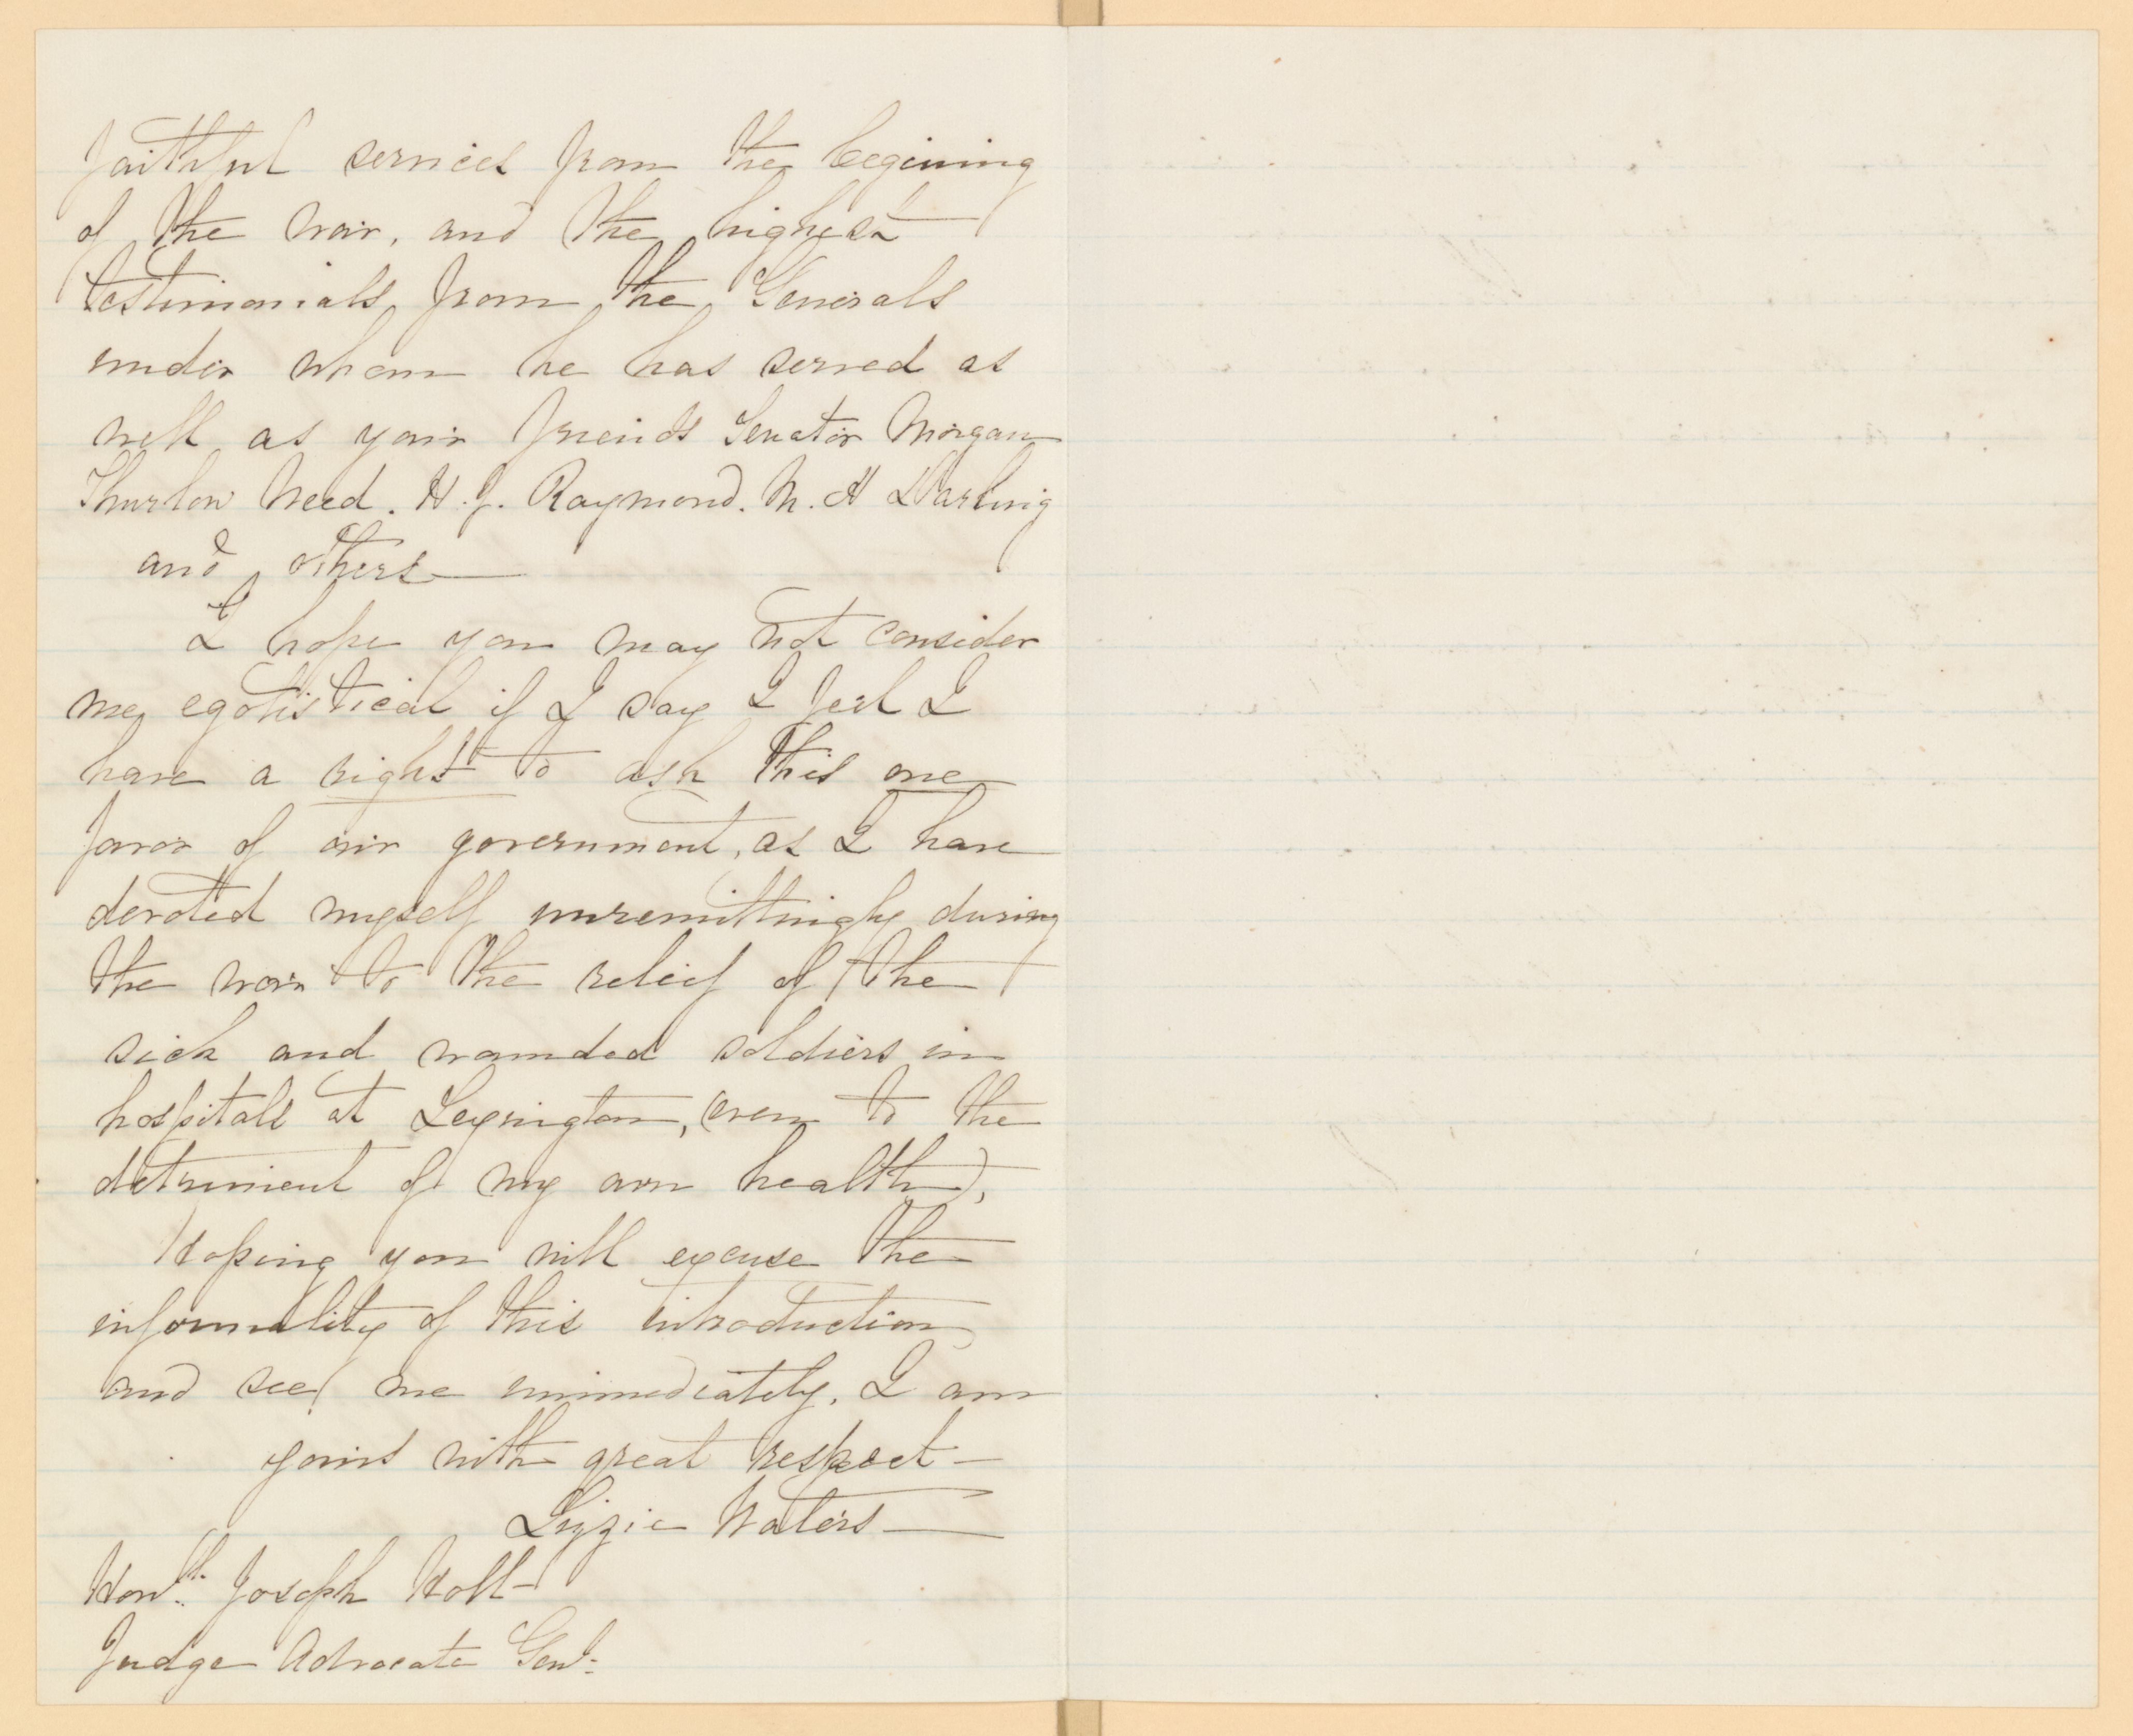 faithful services from the begining
of the war, and the highest
testimonials from the Generals
under whom he has served as
well as your friends Senator Morgan
Thurlow Weed. H. J. Raymond. W. A Darling
and others—
I hope you may not consider
me egotistical if I say I feel I
have a right to ask this one
favor of our government, as I have
devoted myself unremittingly during
the war to the relief of the
sick and wounded soldiers in
hospitals at Lexington, (even to the
detriment of my own health),
Hoping you will excuse the
informality of this introduction
and see me immediately, I am
yours with great respect—
Lizzie Waters—
Honble. Joseph Holt—
Judge Advocate Genl.